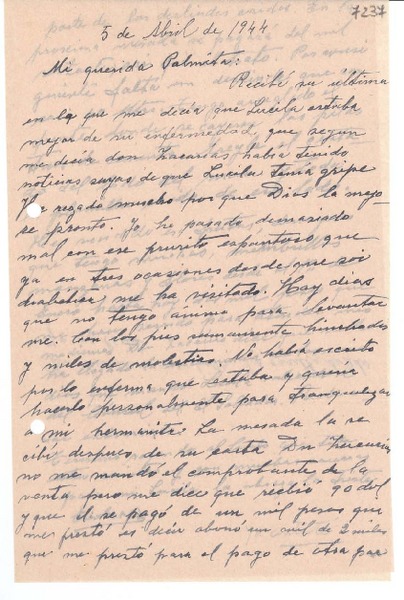 7237
5 de Abril de 1944
Mi querida Palmita:
Recibí su última
en la que me decía que Lucila estaba
mejor de su enfermedad, que segun
me decía don Zacarías había tenido
noticias suyas de que Lucila tenía gripe
He rogado mucho por que Dios la mejo-
re pronto. Yo he pasado demasiado
mal con ese prurito espantoso que
ya en tres ocasiones desde que soi
diabética, me ha visitado. Hay dias
que no tengo animo para levantar
me. Con los pies sumamente hinchados
y miles de molestias. No había escrito
por lo enferma que estaba y queria
hacerlo personalmente para tranquilizar
a mi hermanita. La mesada la re
cibí despues de su carta Dn
no me mandó el comprobante de la
venta pero me dice que recibió 90 dol
y que él se pagó de un mil pesos que
me prestó es decir abonó un mil de 2 miles
que me prestó para el pago de otra par